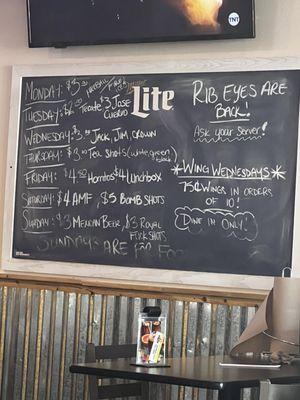 TNT
MONDAY: $3.00 FIREBALL
TUESDAY: $2.00 Tecate $3 Jose Cuervo
WEDNESDAY: $3.00 JACK, JIM, CROWN
THURSDAY: $3.00 Tea Shots (white, green)
FRIDAY: $4.50 Hornitos $4 Lunchbox
SATURDAY: $4 AMF, $5 BOMB SHOTS
SUNDAY: $3 MEXICAN BEER, $3 ROYAL
FLICK SHOTS
SUNDAYS ARE FOR
Lite
RIB EYES ARE
BACK!
Ask your server!
*WING WEDNESDAYS*
75¢ WINGS IN ORDERS
OF 10!
DINE IN ONLY!